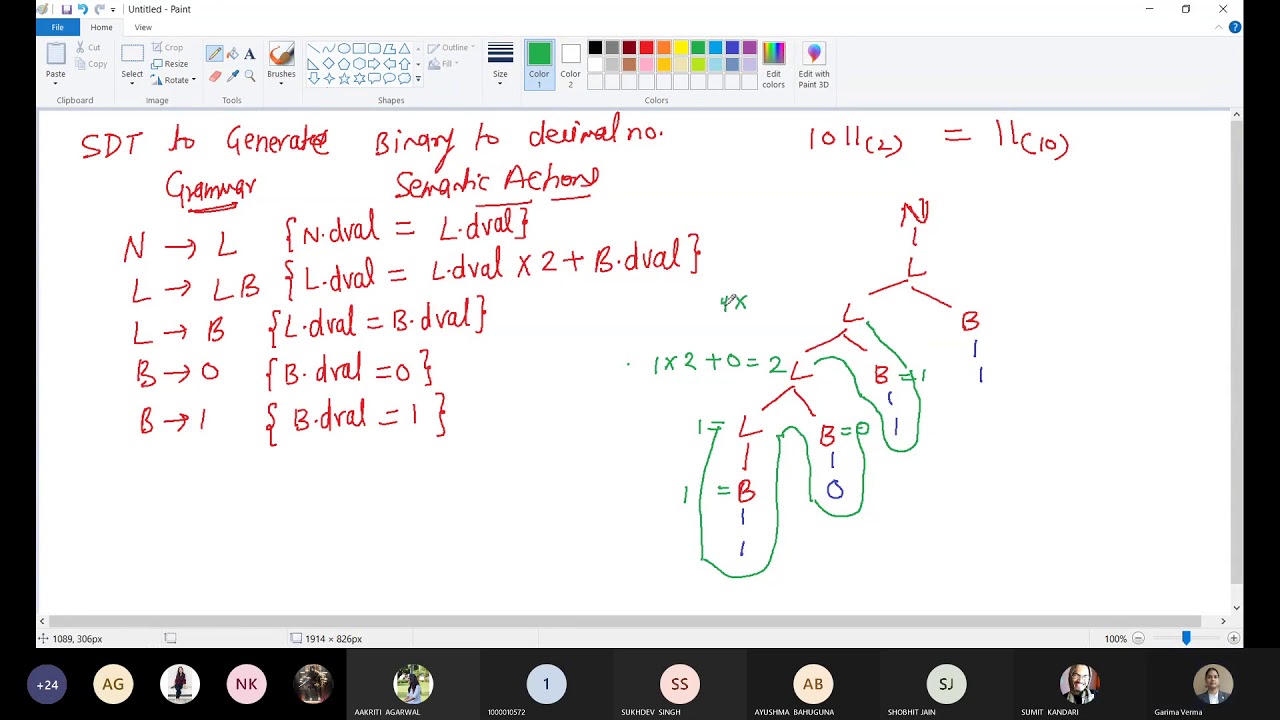 Untitled - Paint
File Home View
Paste Cut Copy Clipboard
Select Crop Resize Rotate Image
A Tools
Brushes
Outline Fill Shapes
Size
Color 1 Color 2 Edit colors Colors
Edit with Paint 3D
SDT to Generate Binary to decimal no. 1011(2) = 11(10)
Grammar Semantic Actions
N → L {N.dval = L.dval}
L → LB {L.dval = L.dval X 2 + B.dval}
L → B {L.dval = B.dval}
B → 0 {B.dval = 0}
B → 1 {B.dval = 1}
N
L
L B
4X
1
1X2+0=2 L B=1
1
1= L B=0
1
1 =B 0
1
1089, 306px 1914 × 826px 100%
+24 AG NK 1 SS AB SJ
AAKRITI AGARWAL 1000010572 SUKHDEV SINGH AYUSHMA BAHUGUNA SHOBHIT JAIN SUMIT KANDARI Garima Verma